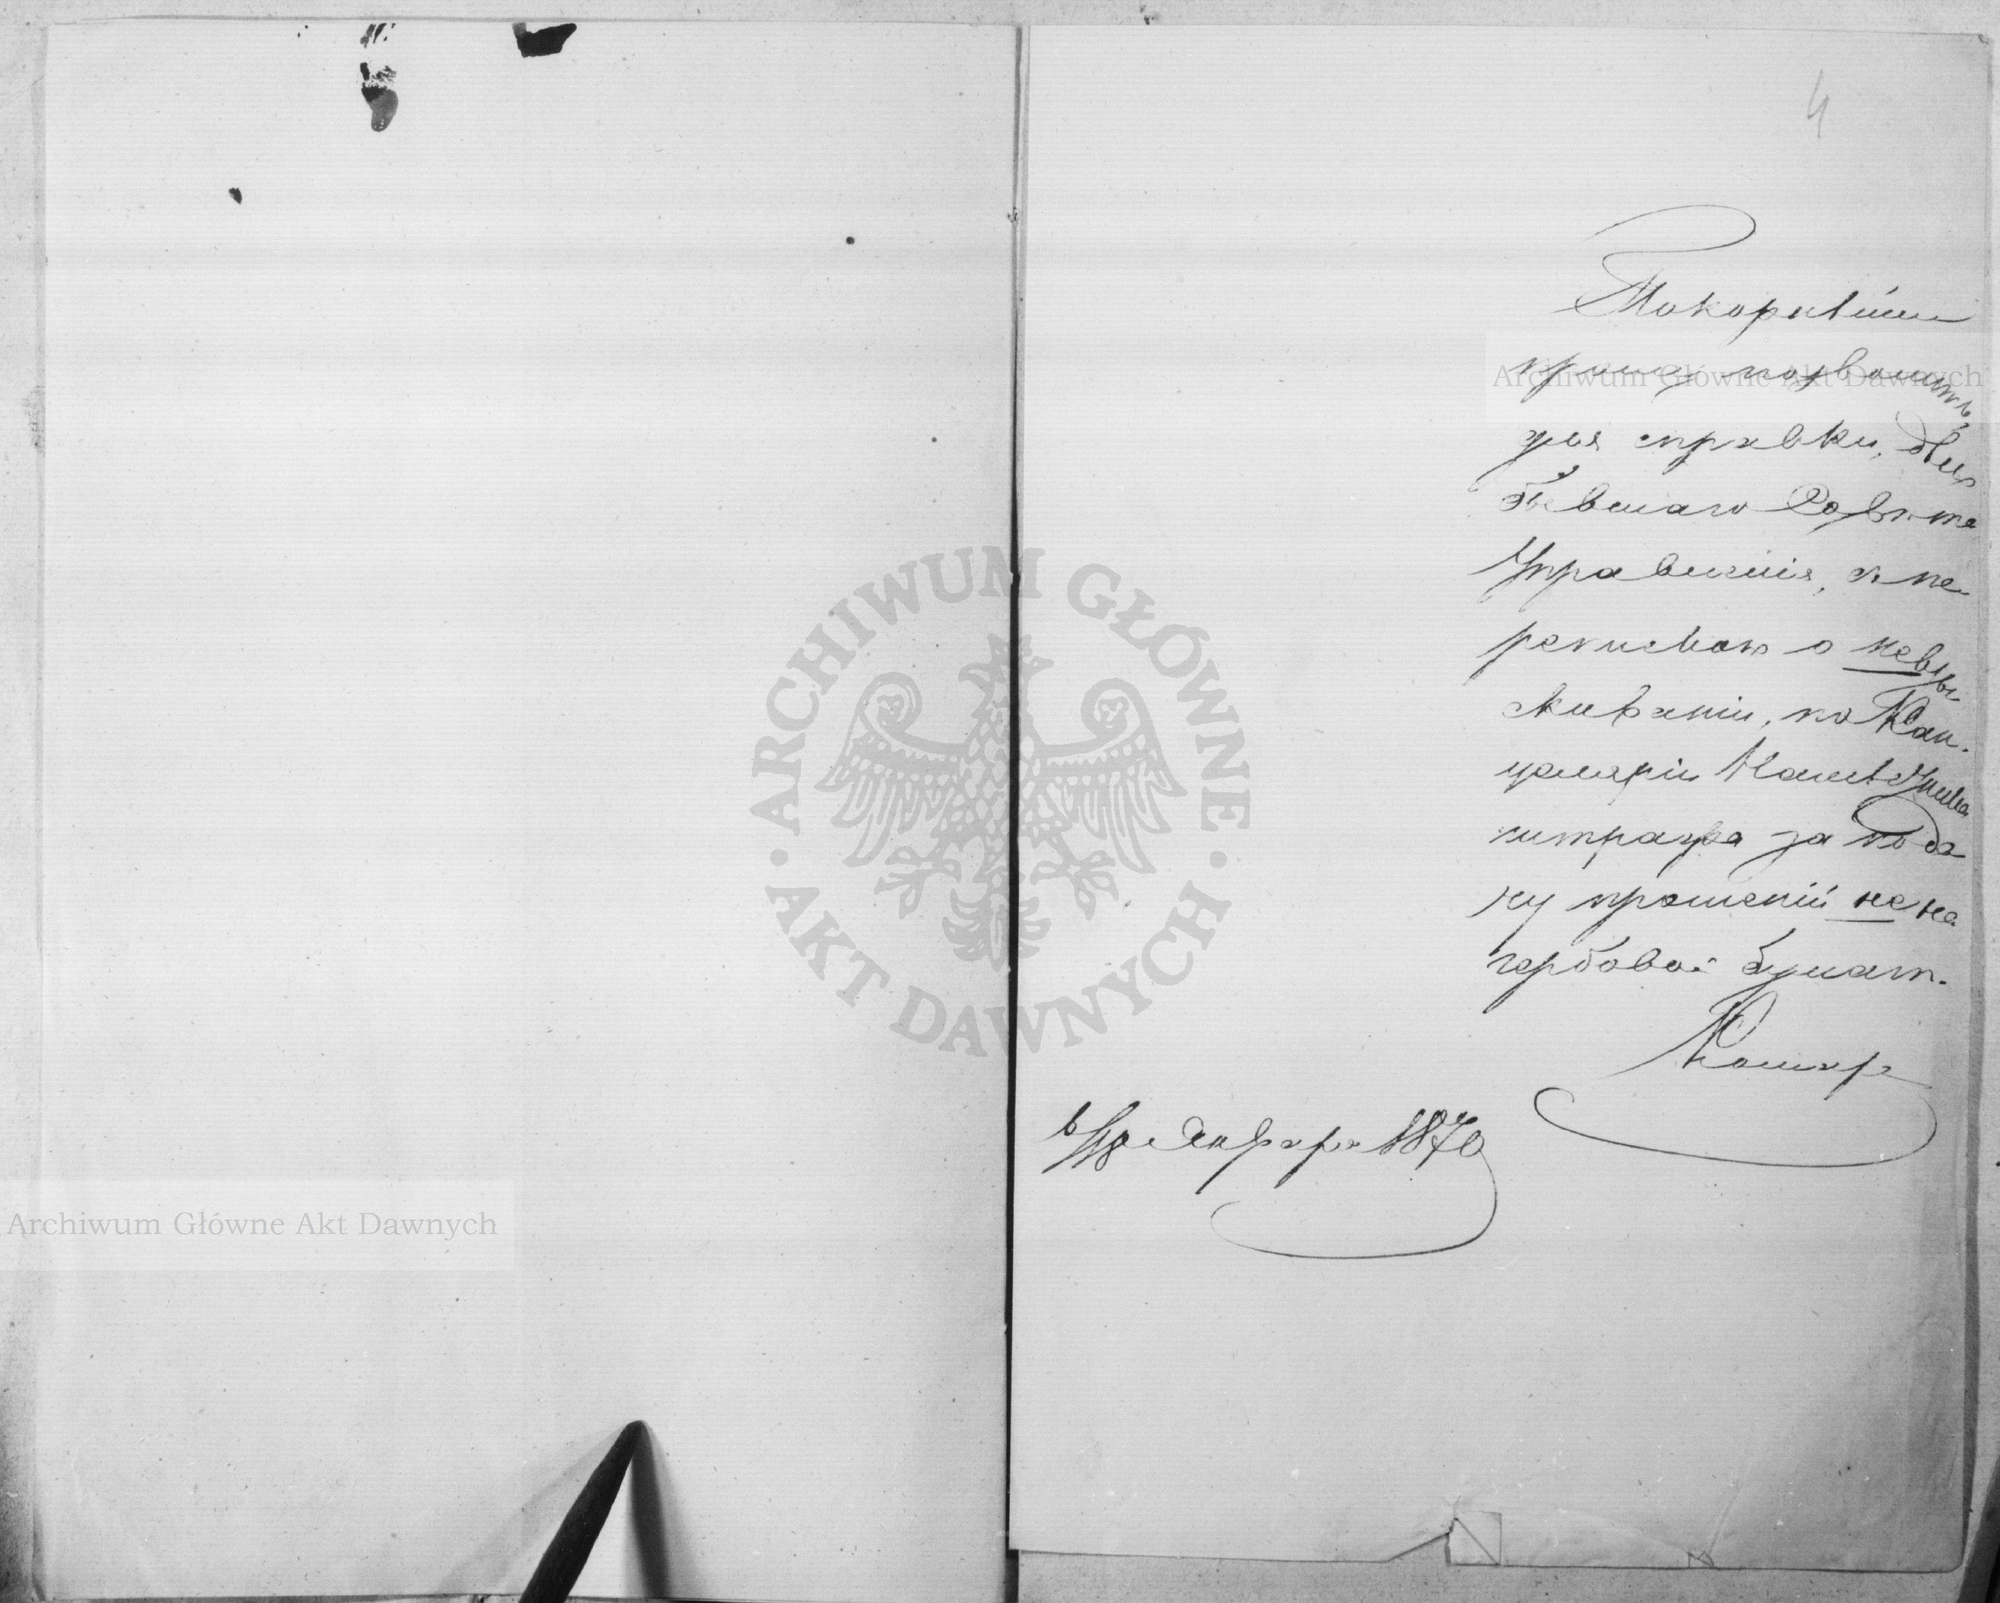 4
Покорнѣйше
прошу позволить,
для справки, дѣло
бывшаго Совѣта
Управленія, съ пе-
репискою о невзы-
скиваніи, по Кан-
целяріи Намѣстника
штрафа за пода-
чу прошеній не на
гербовой бумагѣ.
Января 1870
ARCHIWUM GŁÓWNE
AKT DAWNYCH
Archiwum Główne Akt Dawnych
Archiwum Główne Akt Dawnych